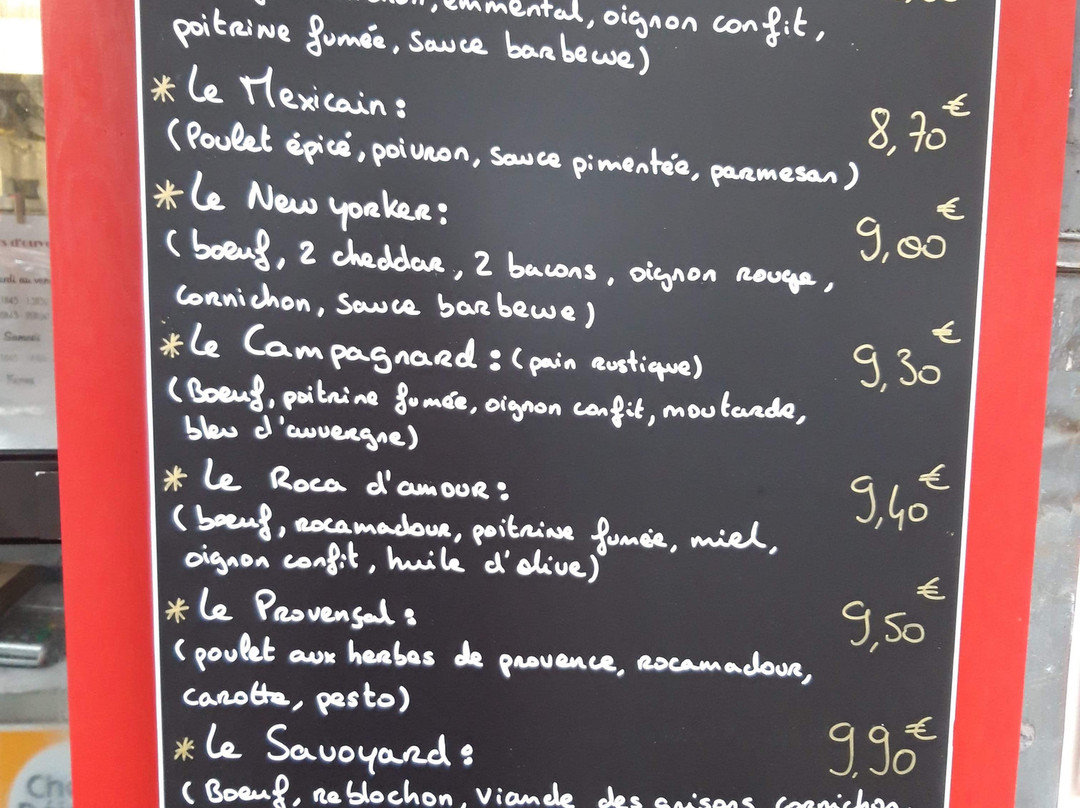 emmental, oignon confit,
poitrine fumée, Sauce barbecue)
* Le Mexicain : 8,70€
(Poulet épicé, poivron, sauce pimentée, parmesan)
* Le New yorker : 9,00€
(boeuf, 2 cheddar, 2 bacons, oignon rouge,
cornichon, Sauce barbecue)
* Le Campagnard : (pain rustique) 9,30€
(Boeuf, poitrine fumée, oignon confit, moutarde,
bleu d'auvergne)
* Le Roca d'amour : 9,40€
(boeuf, rocamadour, poitrine fumée, miel,
oignon confit, huile d'olive)
* Le Provençal : 9,50€
(poulet aux herbes de provence, rocamadour,
carotte, pesto)
* Le Savoyard : 9,90€
(Boeuf, reblochon, viande des grisons, cornichon